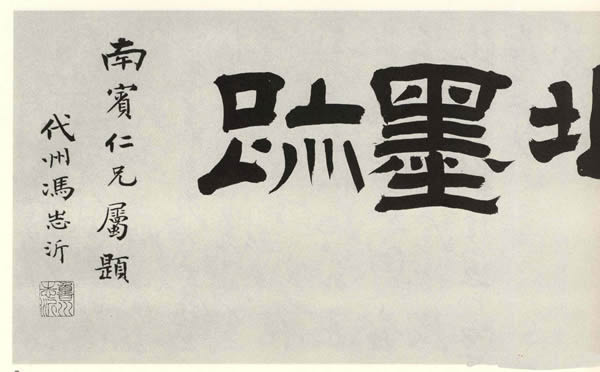 墨跡
南賓仁兄屬題
代州馮志沂